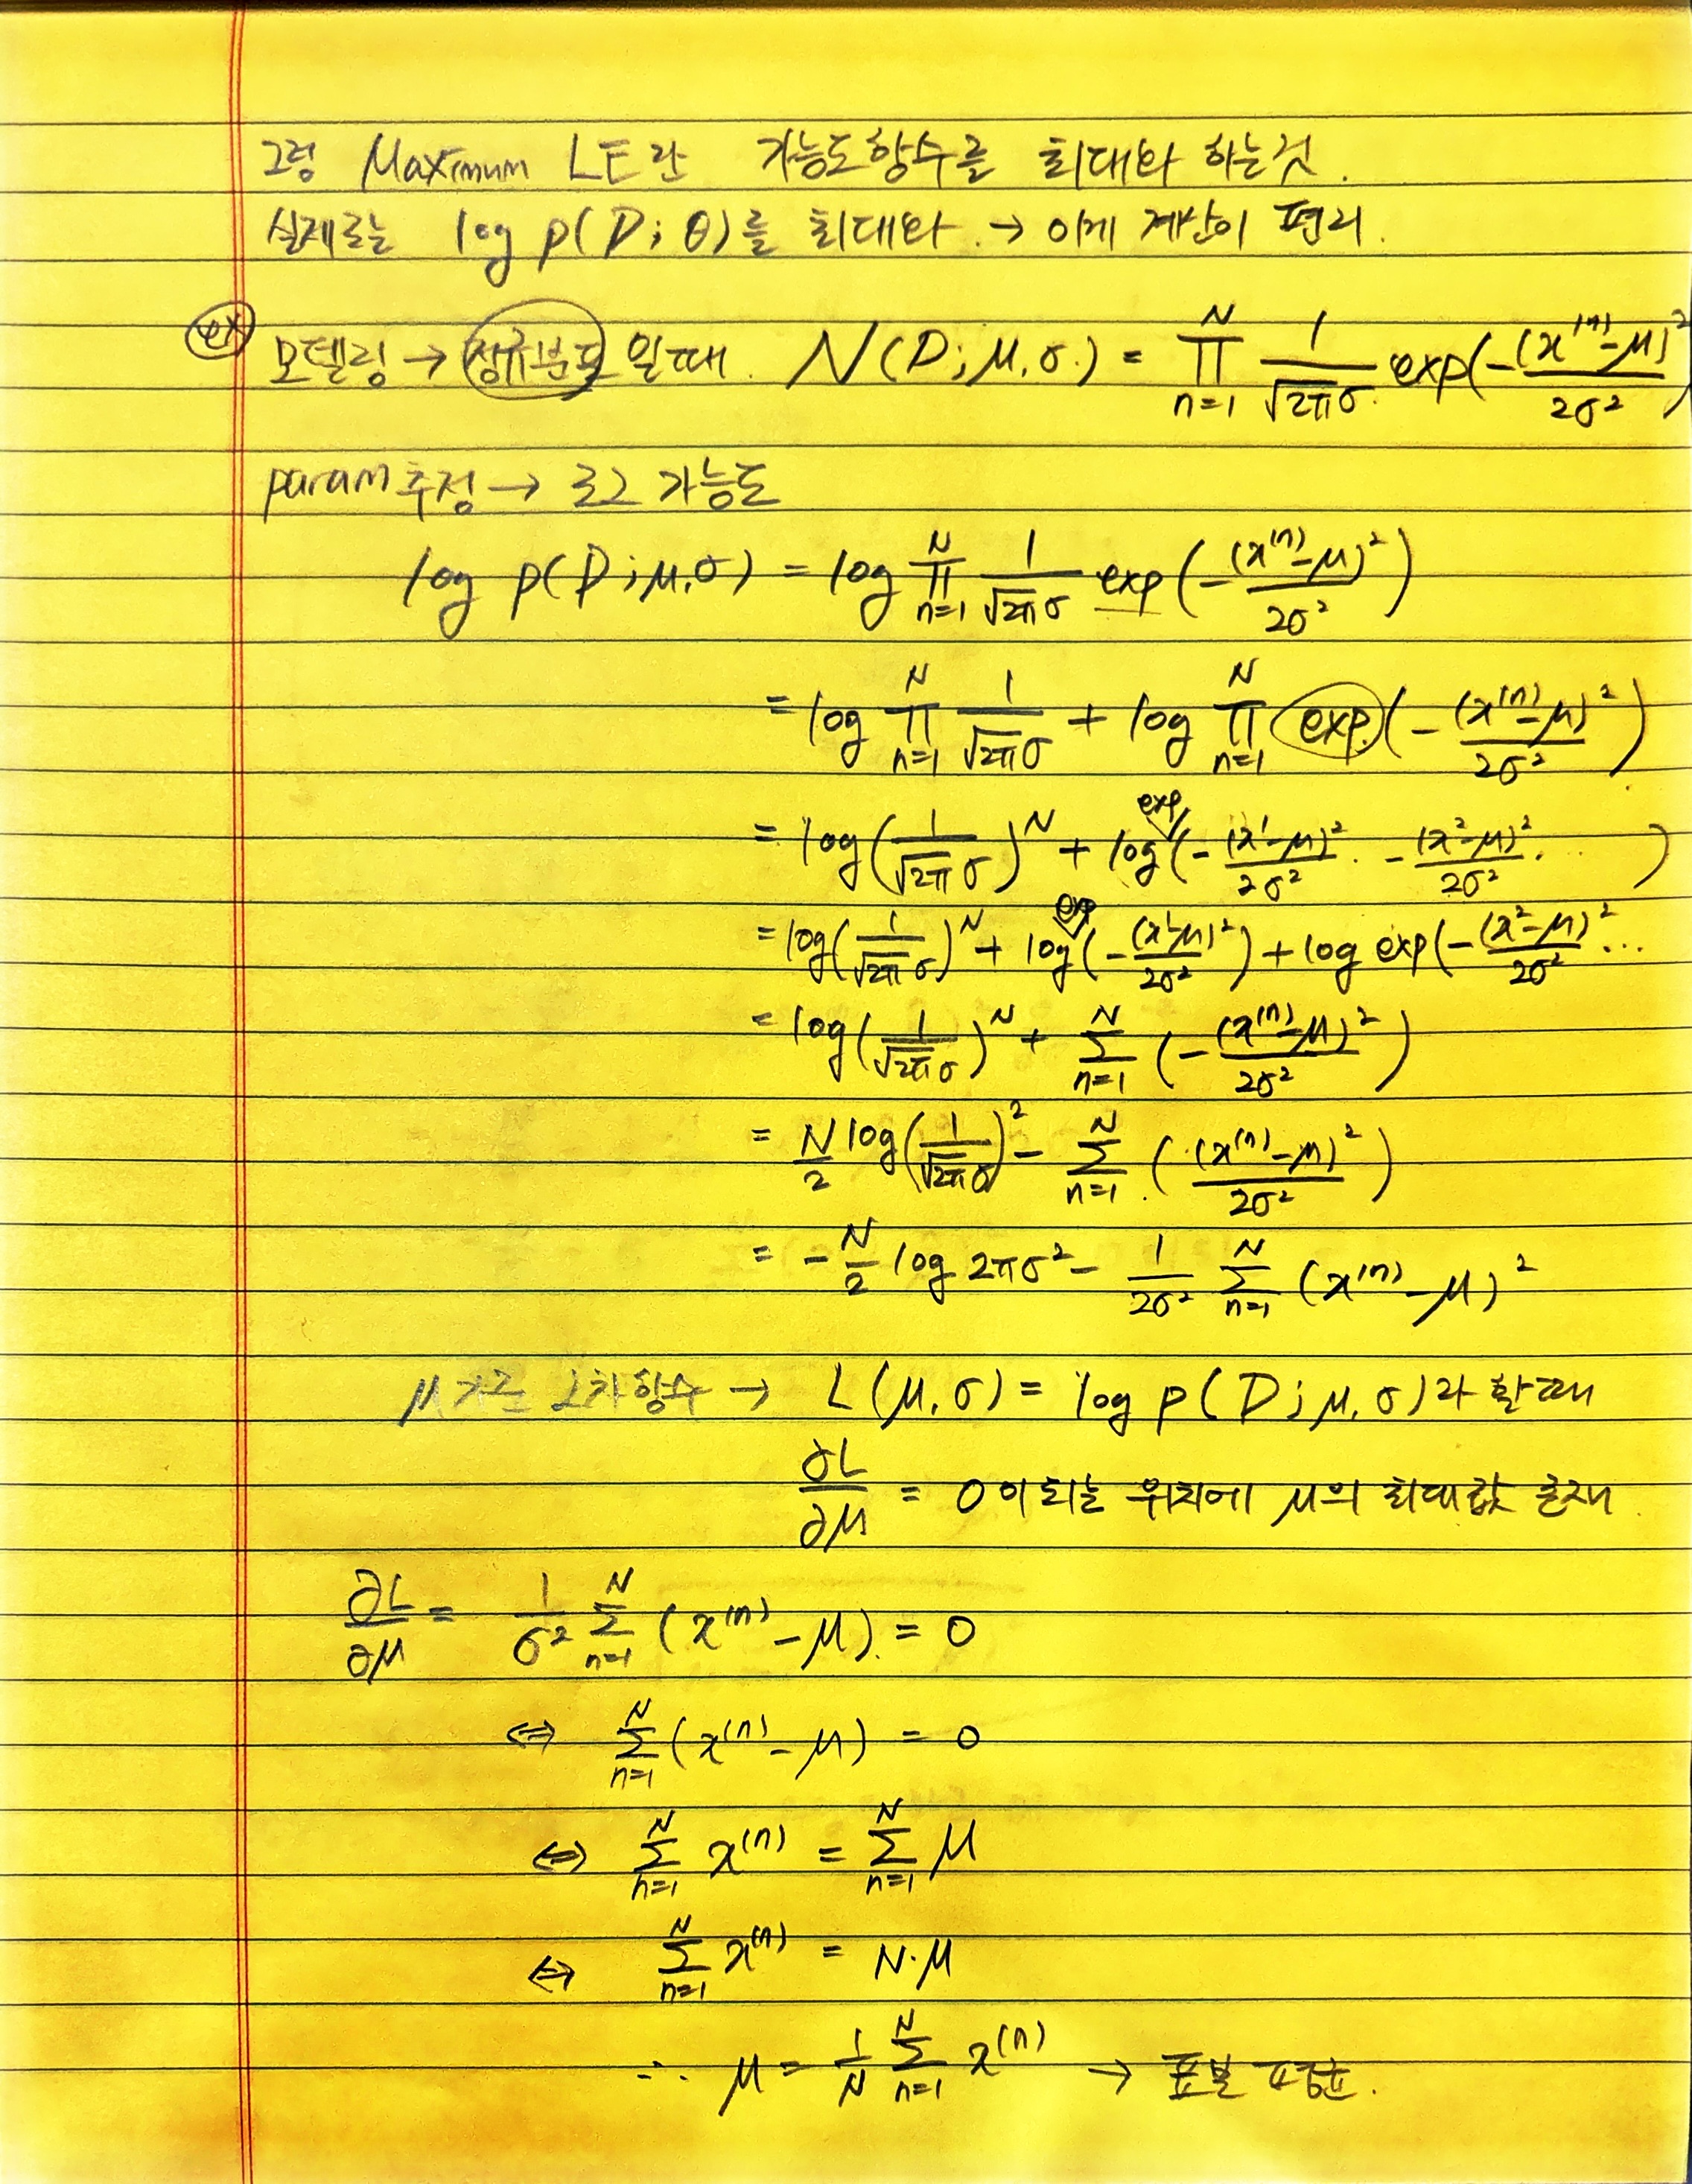 그럼 Maximum LE란 가능도함수를 최대화 하는것.
실제로는 log p(D; θ)를 최대화. → 이게 계산이 편리.
ex 모델링 → 정규분포 일때. N(D; μ, σ) = ∏_{n=1}^{N} \frac{1}{\sqrt{2π}σ} exp(-\frac{(x^{(n)}-μ)^2}{2σ^2})
param 추정 → 로그 가능도
log p(D; μ, σ) = log ∏_{n=1}^{N} \frac{1}{\sqrt{2π}σ} exp(-\frac{(x^{(n)}-μ)^2}{2σ^2})
= log ∏_{n=1}^{N} \frac{1}{\sqrt{2π}σ} + log ∏_{n=1}^{N} exp(-\frac{(x^{(n)}-μ)^2}{2σ^2})
= log(\frac{1}{\sqrt{2π}σ})^N + log exp(-\frac{(x^1-μ)^2}{2σ^2} - \frac{(x^2-μ)^2}{2σ^2} ...)
= log(\frac{1}{\sqrt{2π}σ})^N + log exp(-\frac{(x^1-μ)^2}{2σ^2}) + log exp(-\frac{(x^2-μ)^2}{2σ^2} ...
= log(\frac{1}{\sqrt{2π}σ})^N + ∑_{n=1}^{N} (-\frac{(x^{(n)}-μ)^2}{2σ^2})
= \frac{N}{2} log(\frac{1}{\sqrt{2π}σ})^2 - ∑_{n=1}^{N} (\frac{(x^{(n)}-μ)^2}{2σ^2})
= -\frac{N}{2} log 2πσ^2 - \frac{1}{2σ^2} ∑_{n=1}^{N} (x^{(n)}-μ)^2
μ 기준 2차함수 → L(μ, σ) = log p(D; μ, σ)라 할때
\frac{∂L}{∂μ} = 0이 되는 위치에 μ의 최대값 존재.
\frac{∂L}{∂μ} = \frac{1}{σ^2} ∑_{n=1}^{N} (x^{(n)}-μ) = 0
⇔ ∑_{n=1}^{N} (x^{(n)}-μ) = 0
⇔ ∑_{n=1}^{N} x^{(n)} = ∑_{n=1}^{N} μ
⇔ ∑_{n=1}^{N} x^{(n)} = N·μ
∴ μ = \frac{1}{N} ∑_{n=1}^{N} x^{(n)} → 표본 평균.